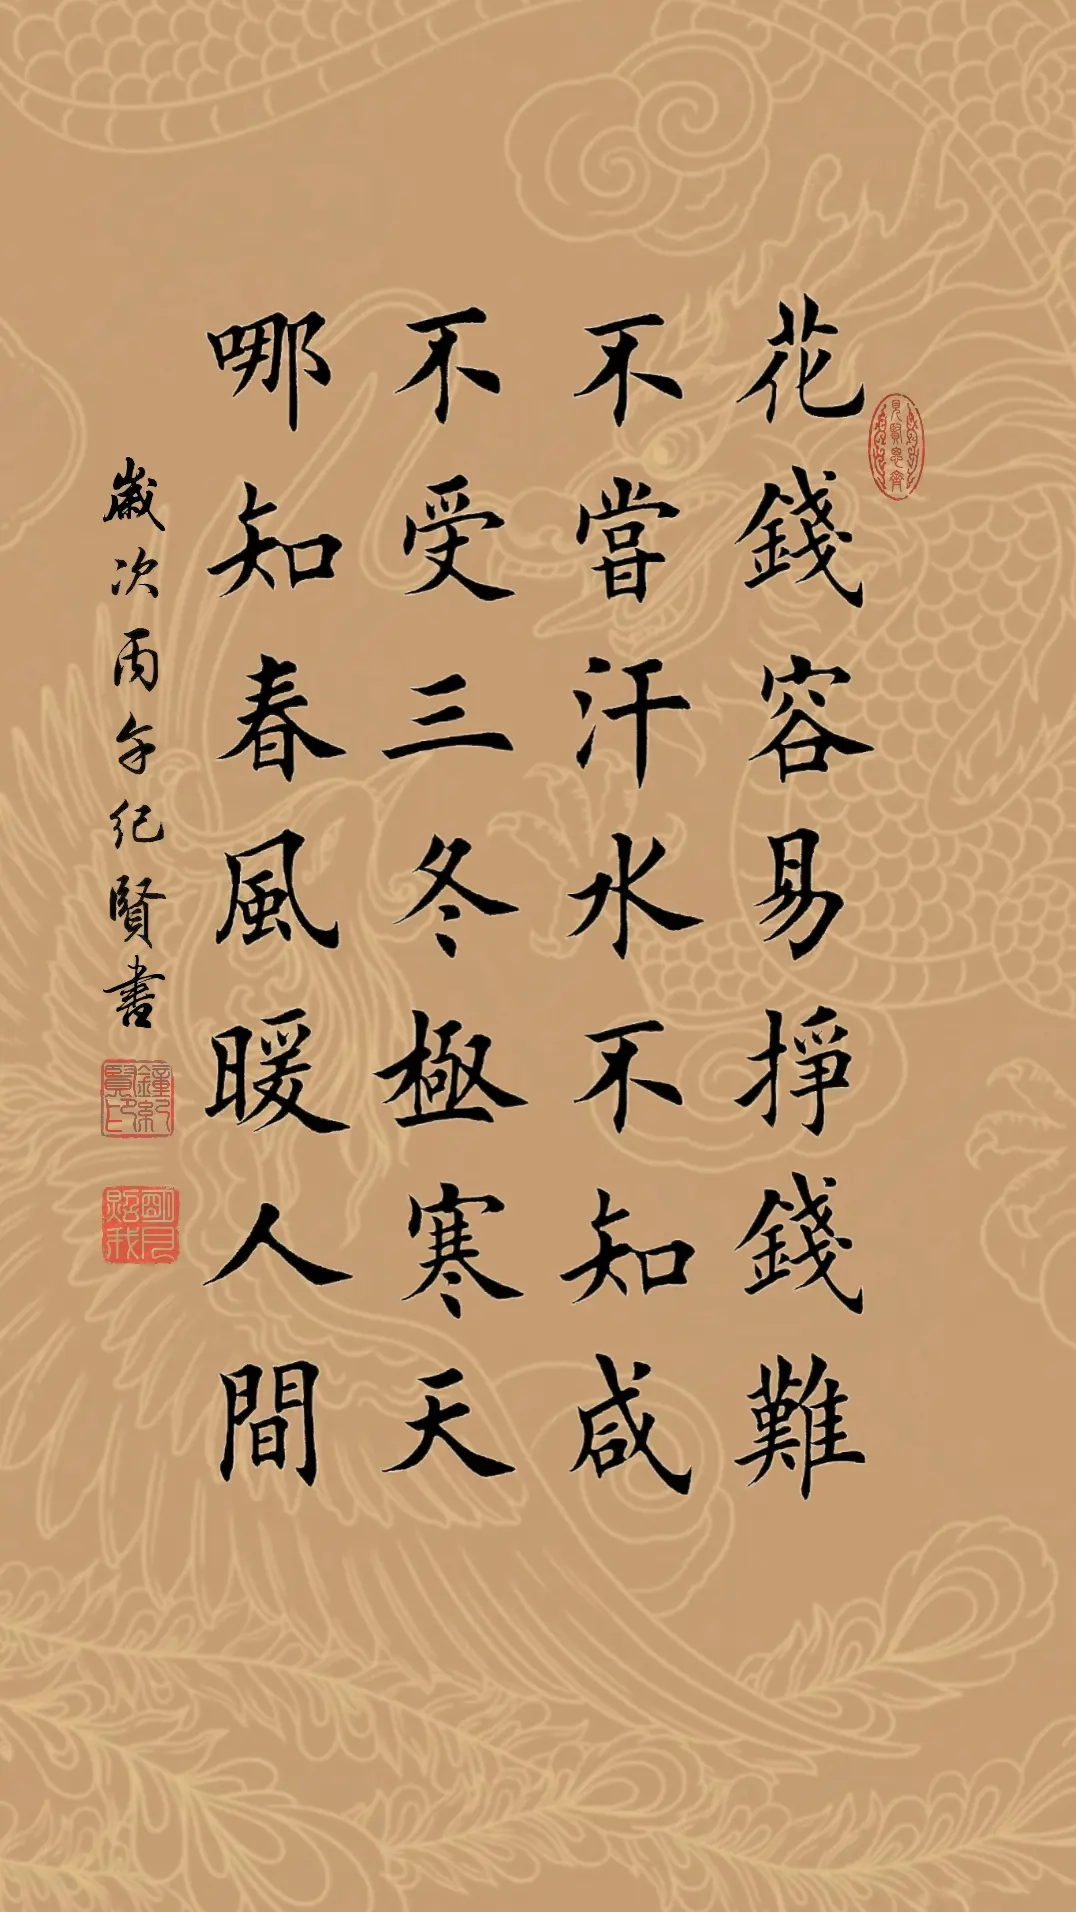 花錢容易掙錢難
不嘗汗水不知咸
不受三冬極寒天
哪知春風暖人間
歲次丙午紀賢書
見賢思齊
鐘紀賢印